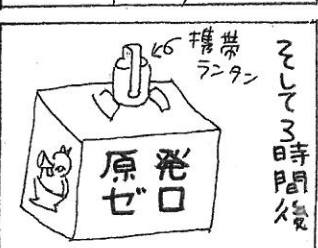 そして3時間後
携帯
ランタン
原発
ゼロ